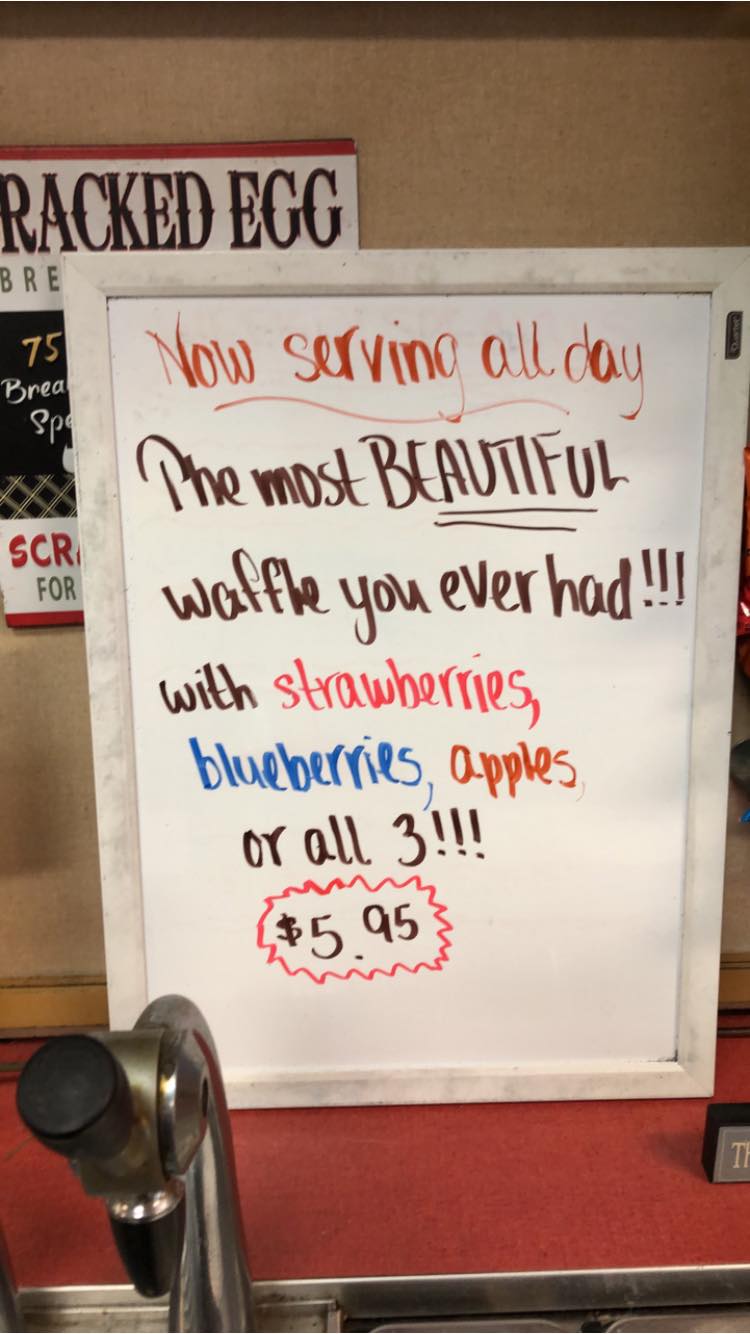 RACKED EGG
BRE
75
Brea
Spe
SCRA
FOR
Now serving all day
The most BEAUTIFUL
waffle you ever had!!!
with strawberries,
blueberries, apples,
or all 3!!!
$5.95
Quartet
TH